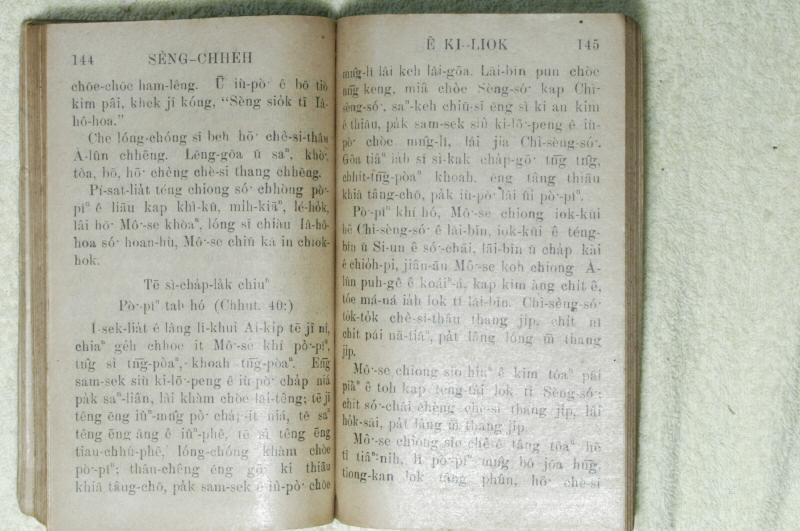 144 SÈNG-CHHEH
chōe-chóe ham-lêng. Ū iù-pò͘ ê bō tiò
kim pâi, khek jī kóng, “Sèng siòk tī Iâ-
hô-hoa.”
Che lóng-chóng sī beh hō͘ chê-si-thâu
A-lûn chhēng. Lêng-gōa ū saⁿ, khò͘,
tòa, bō, hō͘ chêng chè-si thang chhēng.
Pí-sat-liàt têng chiong só͘ chhòng pò͘-
pîⁿ ê liāu kap khì-kū, mih-kiāⁿ, lé-hòk,
lâi hō͘ Mô͘-se khòaⁿ, lóng sī chiàu Iâ-hô-
hoa só͘ hoan-hù, Mô͘-se chiū kā in chiok-
hok.
Tē sì-cháp-làk chiuⁿ
Pò͘-pîⁿ tah hó (Chhut. 40:)
Í-sek-liàt ê lâng lī-khui Ai-kip tē jī nî,
chiaⁿ gèh chhoe it Mô͘-se khí pò͘-pîⁿ,
tn̂g sì tn̄g-pòaⁿ, khoah tn̄g-pòaⁿ. Eng
sam-sek siù ki-lō͘-peng ê iù-pò͘ cháp niá
pàk saⁿ-liân, lâi khàm chòe lāi-têng; tē jī
têng ēng iûⁿ-mn̂g pò͘ cháp-it niá, tē saⁿ
têng ēng âng ê iûⁿ-phê, tē sì têng ēng
tiau-chhú-phê, lóng-chóng khàm chòe
pò͘-pîⁿ; thâu-chêng ēng gō͘ ki thiāu
khiā tâng-chō, pàk sam-sek ê iù-pò͘ chòe
Ê KI-LIOK 145
mn̂g-lî lâi keh lāi-gōa. Lāi-bīn pun chòe
nn̄g keng, miâ chòe Sèng-só͘ kap Chì-
sèng-só͘, saⁿ-keh chiū-sī ēng sì ki an kim
ê thiāu, pàk sam-sek siù ki-lō͘-peng ê iù-
pò͘ chòe mn̂g-lî, lâi jia Chì-sèng-só͘.
Gōa tiâⁿ iàh sī sì-kak chàp-gō͘ tn̄g tn̂g,
chhit-tn̄g-pòaⁿ khoah, ēng tâng thiāu
khiā tâng-chō, pàk iù-pò͘ lâi ûi pò͘-pîⁿ.
Pò͘-pîⁿ khí hó, Mô͘-se chiong iok-kūi
hē Chì-sèng-só͘ ê lāi-bīn, iok-kūi ê téng-
bīn ū Si-un ê só͘-chāi, lāi-bīn ū cháp kài
ê chioh-pi, jiân-āu Mô͘-se koh chiong A-
lûn puh-gê ê koáiⁿ-á, kap kim àng chit ê,
tóe má-ná iàh lok tī lāi-bīn. Chì-sèng-só͘
tòk-tòk chê-si-thâu thang jip, chit nî
chit pái nā-tiāⁿ, pàt lâng lóng m̄ thang
jip.
Mô͘-se chiong sio hiuⁿ ê kim tôaⁿ pâi
piáⁿ ê toh kap teng-tâi lok tī Sèng-só͘;
chit só͘-chāi chèng chè-si thang jip, lâi
hòk-sāi, pàt lâng m̄ thang jip.
Mô͘-se chiong sio chè ê tâng tôaⁿ hē
tī tiâⁿ-nih, lī pò͘-pîⁿ mn̂g bô jōa hn̄g,
tiong-kan lok tâng phûn, hō͘ chè-si